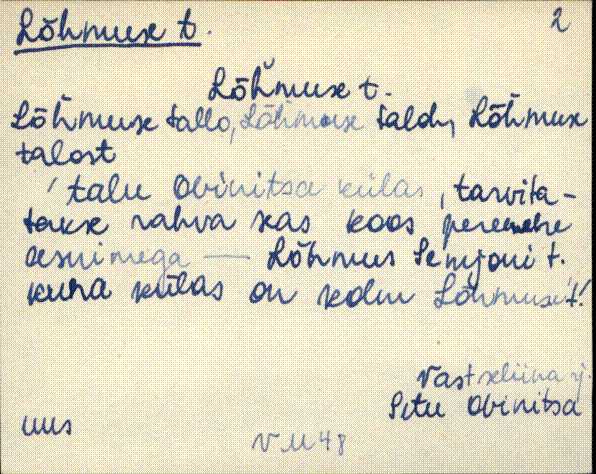 Lõhmuse t. 2
Lõhmuse t.
Lõhmuse tallo, Lõhmuse taldu, Lõhmuse
talost
' talu Obinitsa külas, tarvita-
takse rahva seas koos peremehe
eesnimega — Lõhmus Semjoni t.
kuna külas on kolm Lõhmuse t!
Vastseliina
Setu Obinitsa
uus
V M 48